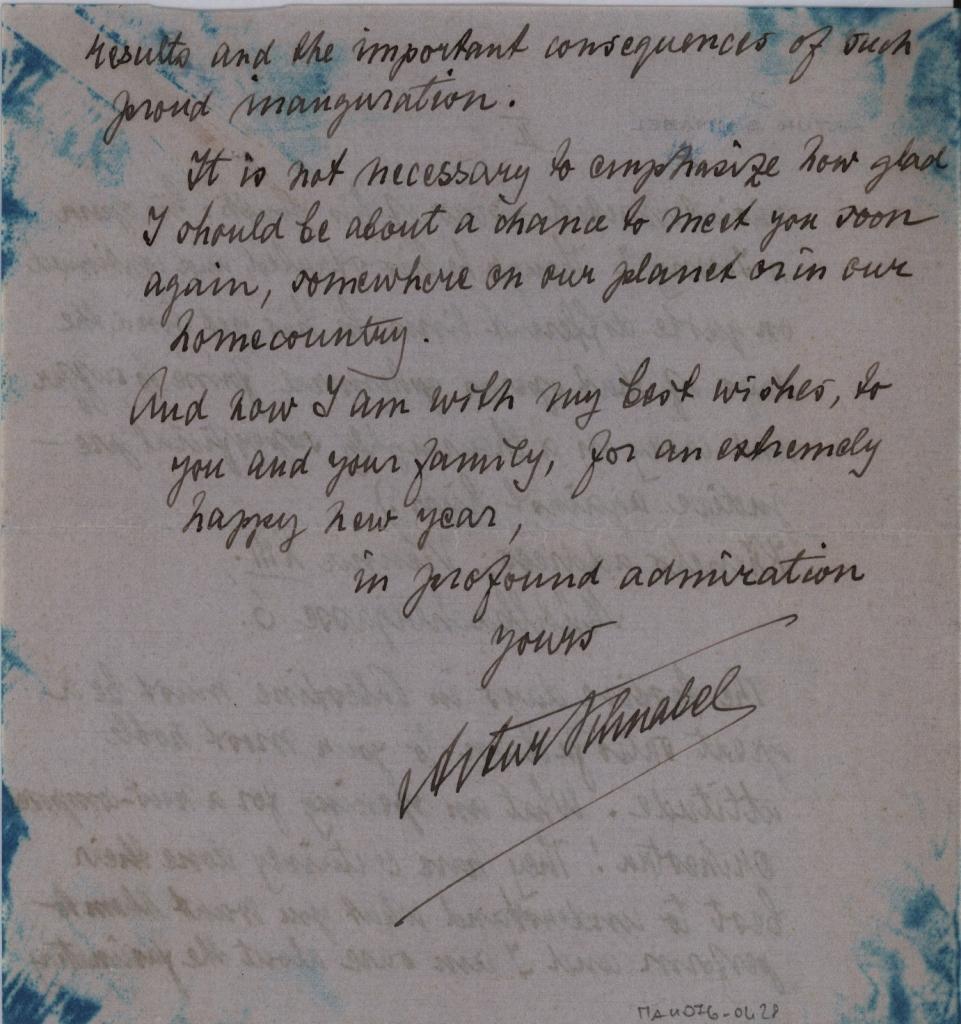 results and the important consequences of such
proud inauguration.
It is not necessary to emphasize how glad
I should be about a chance to meet you soon
again, somewhere on our planet or in our
homecountry.
And now I am with my best wishes, to
you and your family, for an extremely
happy new year,
in profound admiration
yours
Artur Schnabel